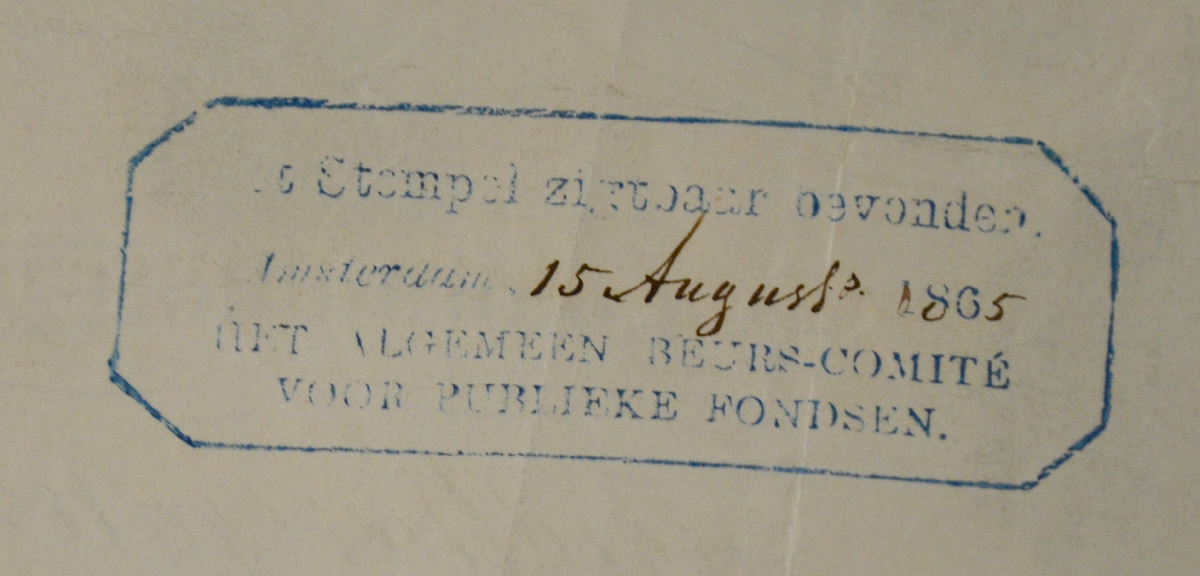 Stempel zigtbaar bevonden.
Amsterdam, 15 Augusts. 1865
HET ALGEMEEN BEURS-COMITÉ
VOOR PUBLIEKE FONDSEN.